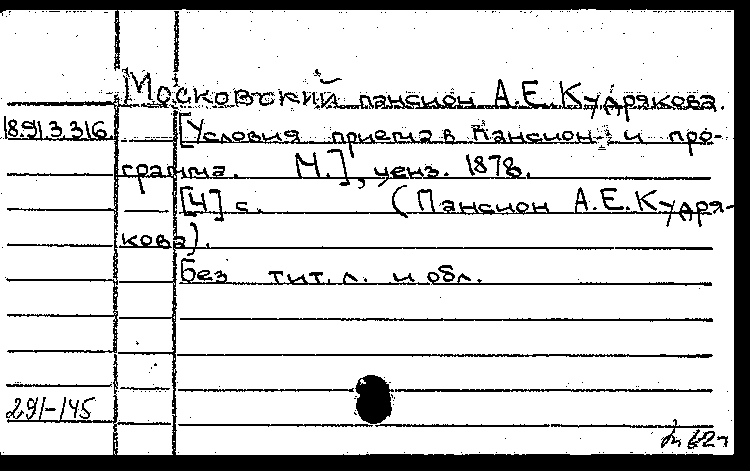 Московский пансион А.Е.Кудрякова.
18.913.316. [Условия приема в пансион и про-
грамма. М.], ценз. 1878.
[4] с. (Пансион А.Е.Кудря-
кова).
Без тит. л. и обл.
291-145